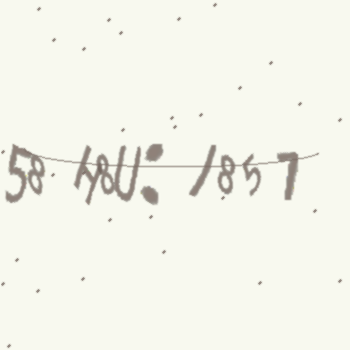 58 H8U: 1857